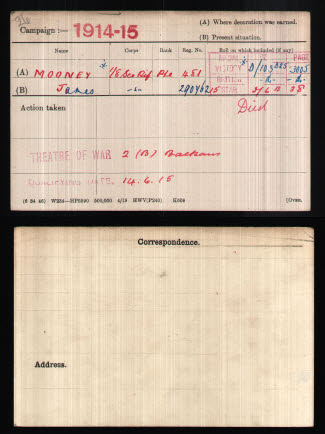 Campaign :— 1914-15
(A) Where decoration was earned.
(B) Present situation.
Name Corps Rank Reg. No. Roll on which included (if any)
MEDAL ROLL PAGE
(A) MOONEY * 1/8 Sco Rif. Pte 451 VICTORY * D/103B25 3003
(B) James -"- 290462 British -"- -"-
15 STAR D/6 B 28
Action taken Died
THEATRE OF WAR 2 (B) Balkans
QUALIFYING DATE. 14.6.15
(6 34 46) W234—HP5590 500,000 4/19 HWV(P240) K608 [Over.
Correspondence.
Address.